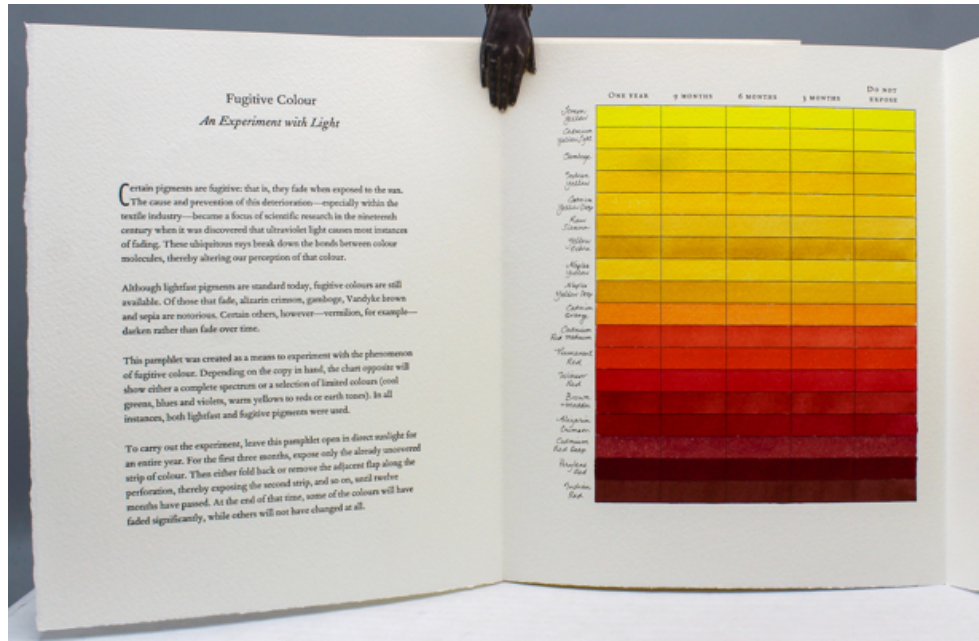 Fugitive Colour
An Experiment with Light
Certain pigments are fugitive: that is, they fade when exposed to the sun.
The cause and prevention of this deterioration—especially within the
textile industry—became a focus of scientific research in the nineteenth
century when it was discovered that ultraviolet light causes most instances
of fading. These ubiquitous rays break down the bonds between colour
molecules, thereby altering our perception of that colour.
Although lightfast pigments are standard today, fugitive colours are still
available. Of those that fade, alizarin crimson, gamboge, Vandyke brown
and sepia are notorious. Certain others, however—vermilion, for example—
darken rather than fade over time.
This pamphlet was created as a means to experiment with the phenomenon
of fugitive colour. Depending on the copy in hand, the chart opposite will
show either a complete spectrum or a selection of limited colours (cool
greens, blues and violets, warm yellows to reds or earth tones). In all
instances, both lightfast and fugitive pigments were used.
To carry out the experiment, leave this pamphlet open in direct sunlight for
an entire year. For the first three months, expose only the already uncovered
strip of colour. Then either fold back or remove the adjacent flap along the
perforation, thereby exposing the second strip, and so on, until twelve
months have passed. At the end of that time, some of the colours will have
faded significantly, while others will not have changed at all.
One year 9 months 6 months 3 months Do not
expose
Lemon
Yellow
Cadmium
Yellow Light
Gamboge
Yellow
Yellow Deep
Raw
Sienna
Yellow
Ochre
Naples
Yellow
Naples
Yellow Deep
Cadmium
Orange
Cadmium
Red Medium
Permanent
Red
Winsor
Red
Brown
Madder
Alizarin
Crimson
Cadmium
Red Deep
Perylene
Red
Indian
Red